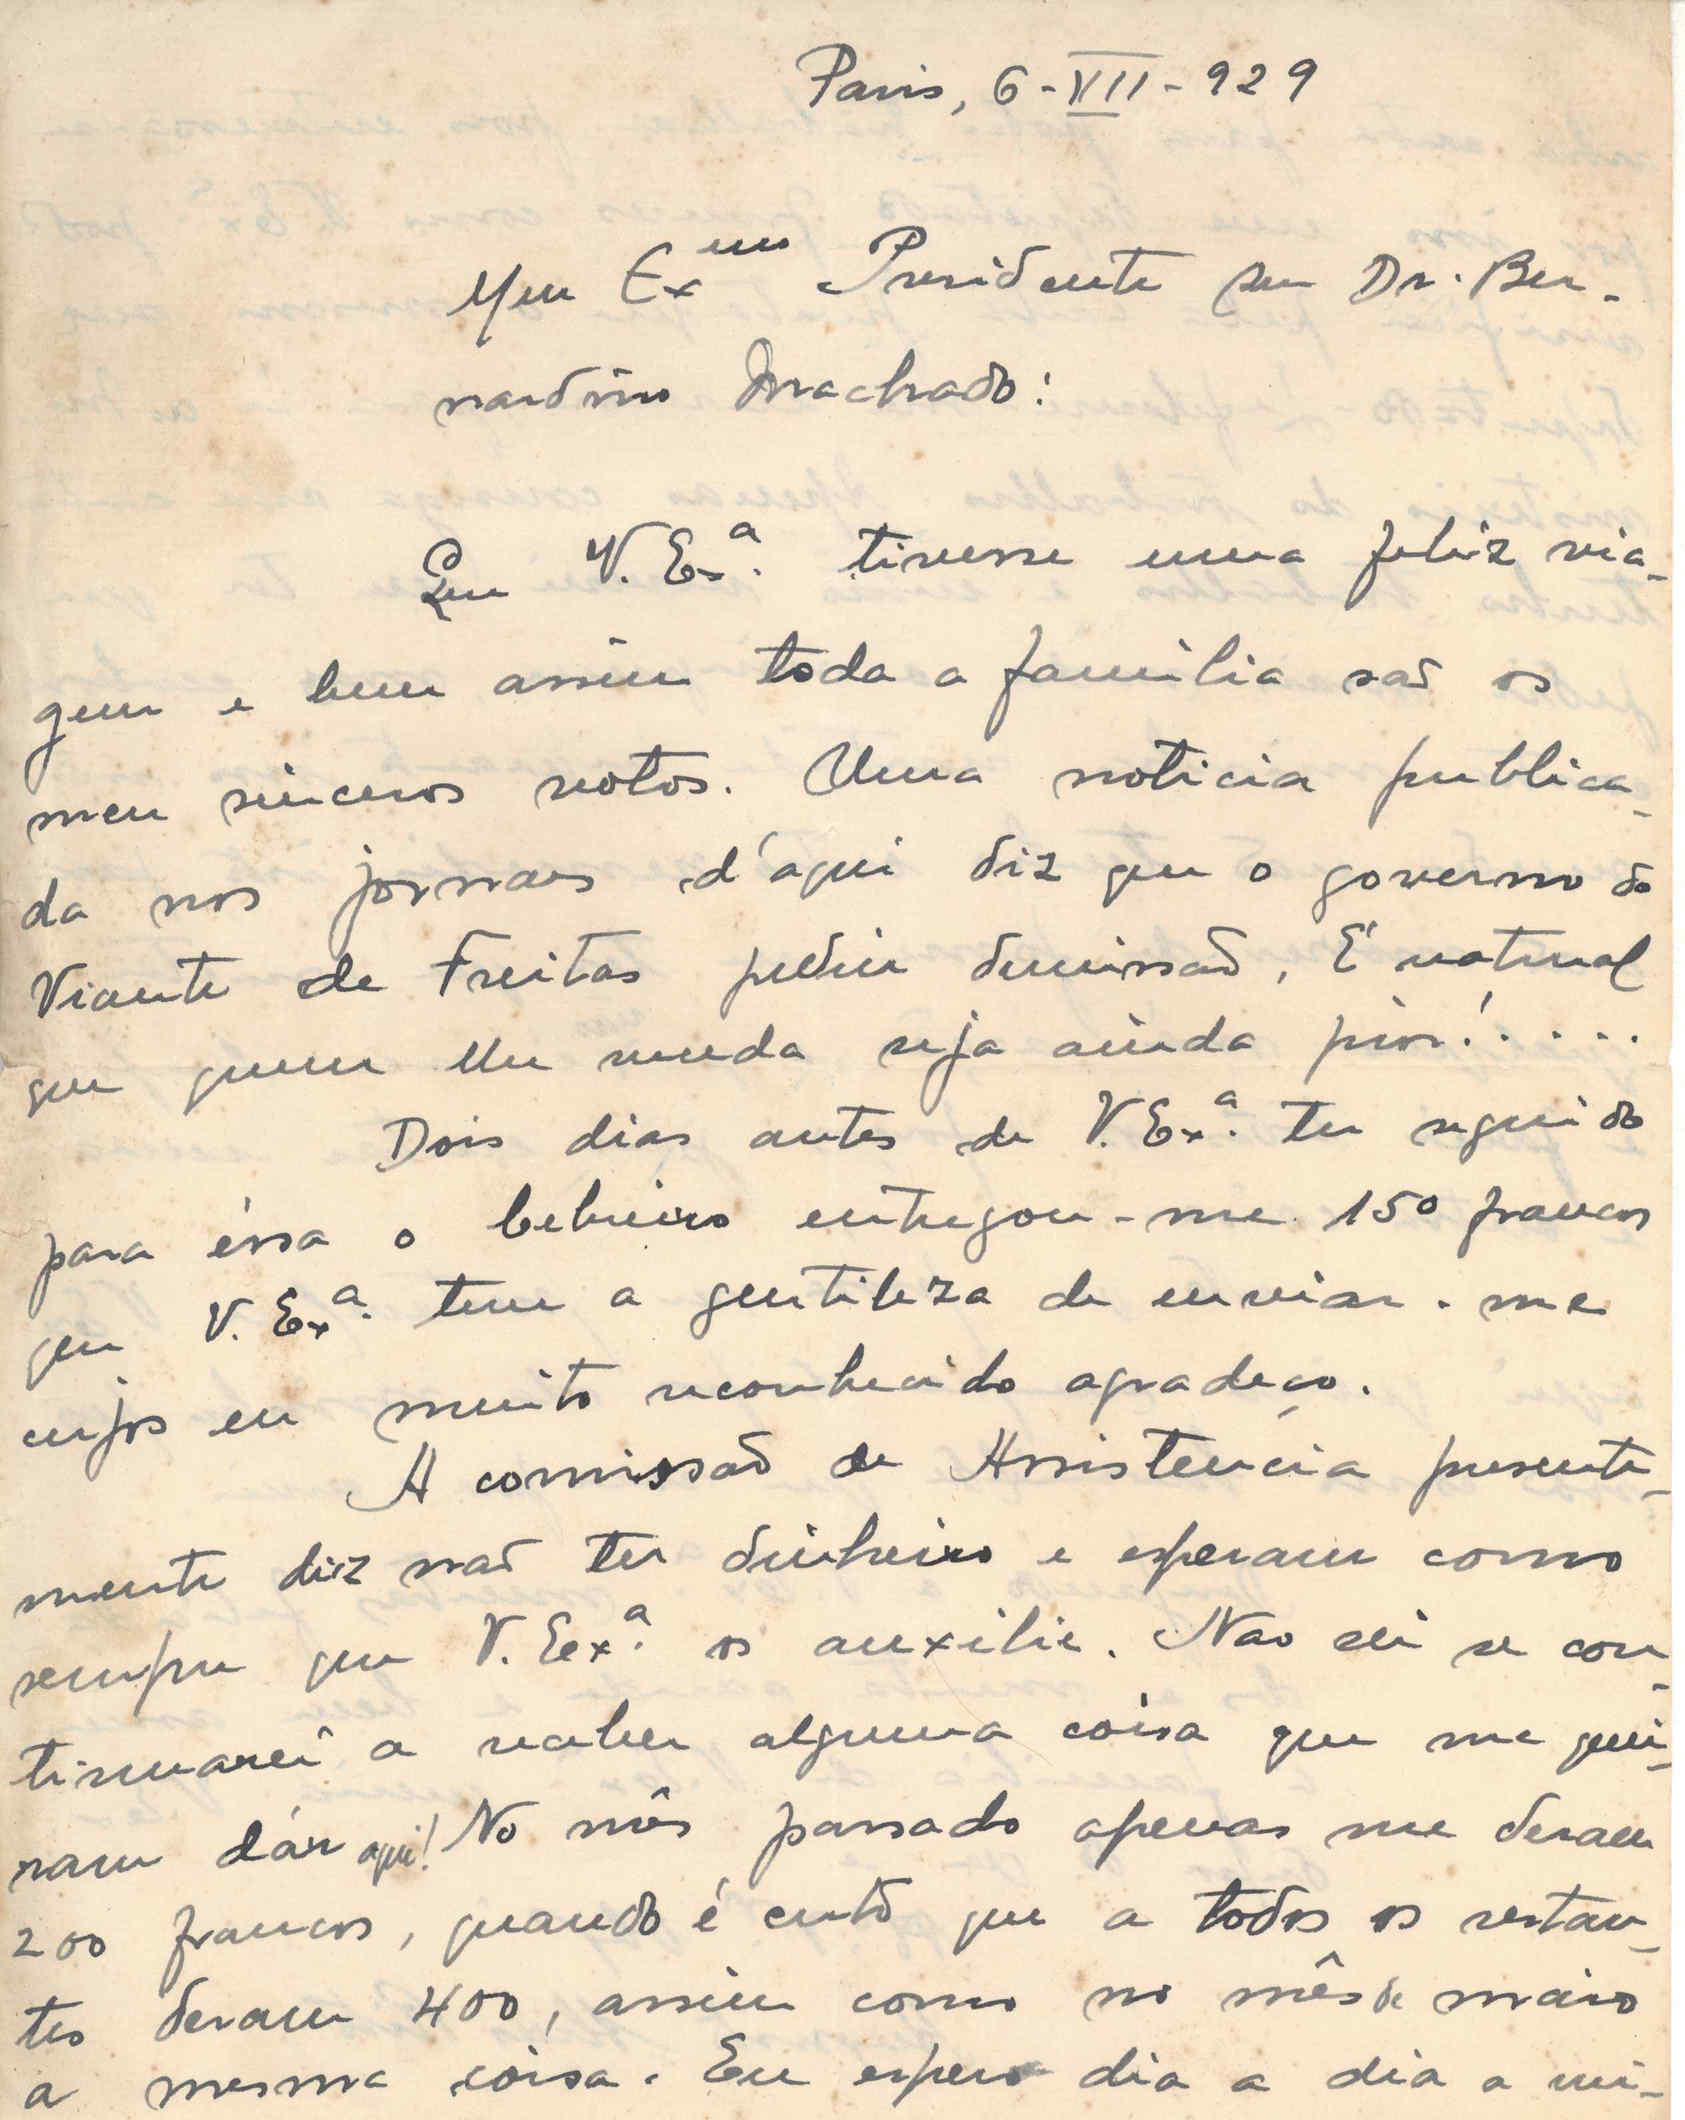 Paris, 6-VII-929
Meu Exmo Presidente Snr Dr. Ber-
nardino Machado:
Que V. Exª. tivesse uma feliz via-
gem e bem assim toda a familia são os
meu sinceros votos. Uma noticia publica-
da nos jornaes d'aqui diz que o governo do
Vicente de Freitas pediu demissão, É natural
que quem lhe suceda seja ainda pior!.....
Dois dias antes de V. Exª. ter seguido
para éssa o entregou-me 150 francos
que V. Exª. teve a gentileza de enviar-me
cujos eu muito reconhecido agradeço.
A comissão de Assistencia presente-
mente diz não ter dinheiro e esperam como
sempre que V. Exª. os auxilie. Nao sei se con-
tinuarei a receber alguma coisa que me quei-
ram dár aqui! No mês passado apenas me deram
200 francos, quando é certo que a todos os restan-
tes deram 400, assim como no mês de maio
a mesma coisa. Eu espero dia a dia a mi-